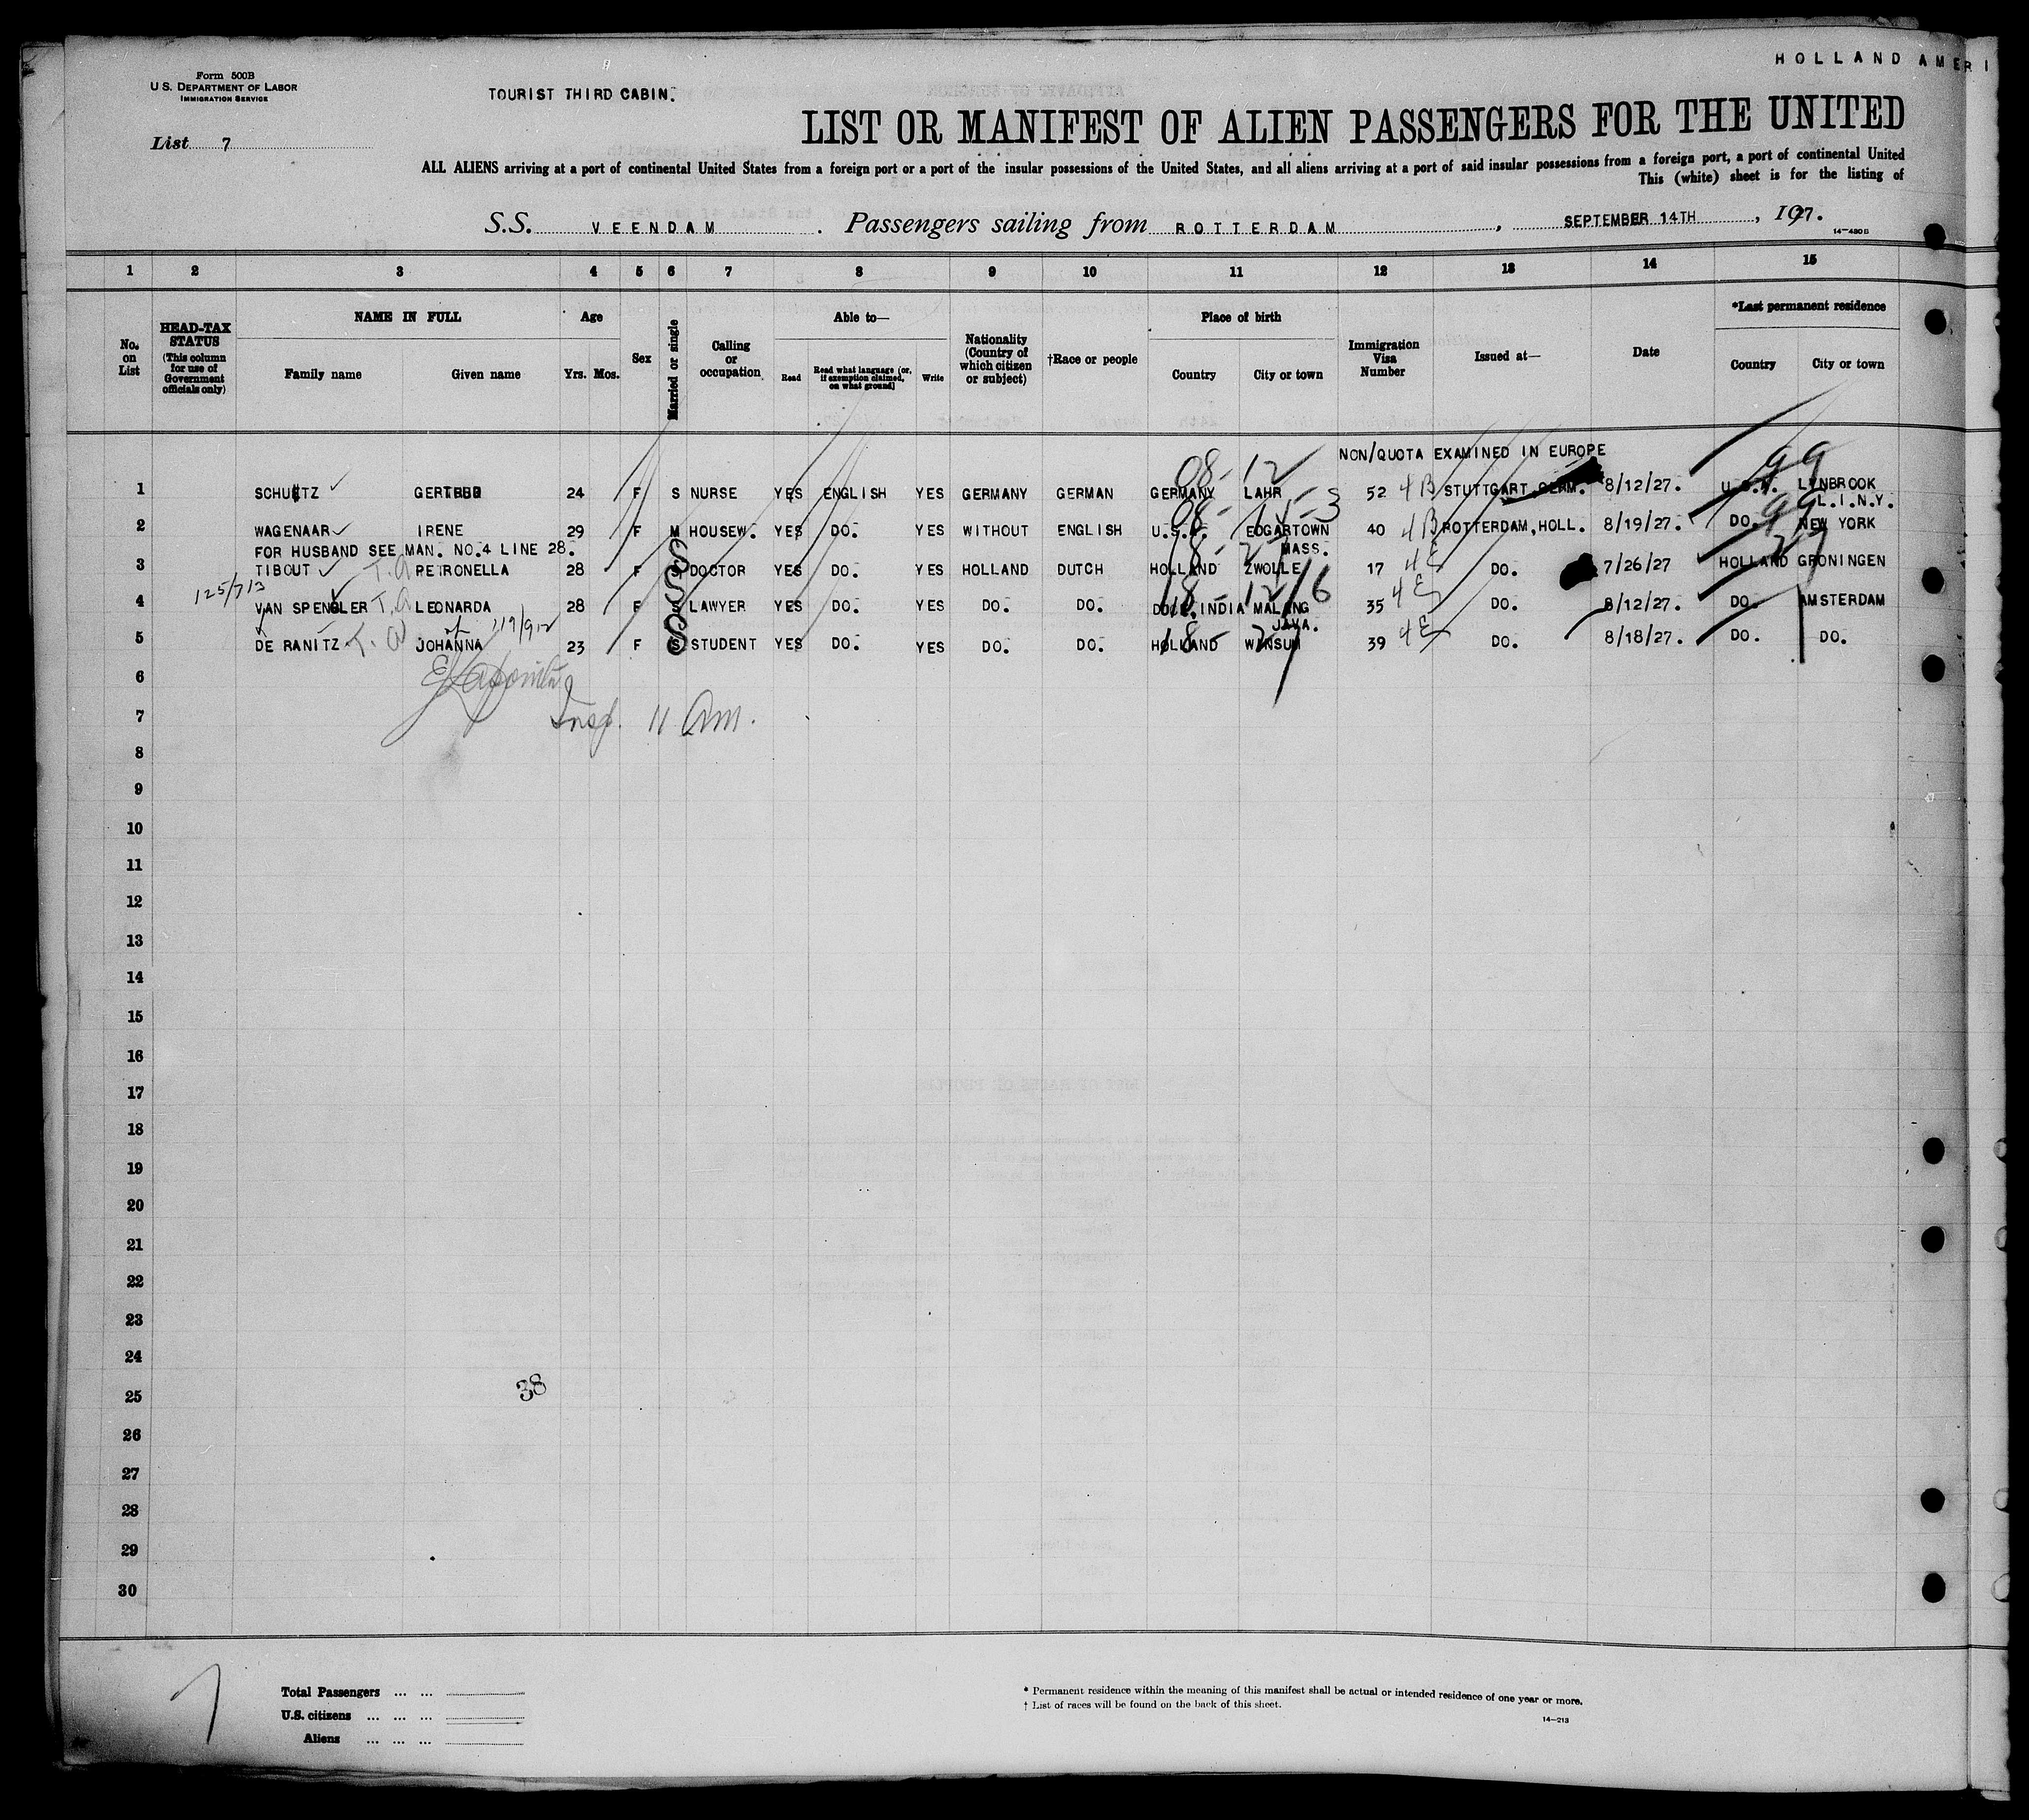 HOLLAND AMERI
Form 500B
U.S. DEPARTMENT OF LABOR
IMMIGRATION SERVICE
TOURIST THIRD CABIN.
List 7
LIST OR MANIFEST OF ALIEN PASSENGERS FOR THE UNITED
ALL ALIENS arriving at a port of continental United States from a foreign port or a port of the insular possessions of the United States, and all aliens arriving at a port of said insular possessions from a foreign port, a port of continental United
This (white) sheet is for the listing of
S.S. VEENDAM . Passengers sailing from ROTTERDAM , SEPTEMBER 14TH , 1927.
14—480B
1 2 3 4 5 6 7 8 9 10 11 12 13 14 15
No. on List
HEAD-TAX STATUS (This column for use of Government officials only)
NAME IN FULL
Family name Given name
Age
Yrs. Mos.
Sex
Married or single
Calling or occupation
Able to—
Read Read what language (or, if exemption claimed, on what ground) Write
Nationality (Country of which citizen or subject)
†Race or people
Place of birth
Country City or town
Immigration Visa Number
Issued at—
Date
*Last permanent residence
Country City or town
NON/QUOTA EXAMINED IN EUROPE
08-12 99
1 SCHUETZ GERTRUD 24 F S NURSE YES ENGLISH YES GERMANY GERMAN GERMANY LAHR 52 4B STUTTGART GERM. 8/12/27. U.S.A. LYNBROOK
L.I.N.Y.
2 WAGENAAR IRENE 29 F M HOUSEW. YES DO. YES WITHOUT ENGLISH U.S.A. EDGARTOWN 40 4B ROTTERDAM, HOLL. 8/19/27. DO. 99 NEW YORK
FOR HUSBAND SEE MAN. NO.4 LINE 28. MASS.
3 TIBOUT T.A PETRONELLA 28 F S DOCTOR YES DO. YES HOLLAND DUTCH HOLLAND ZWOLLE 17 4E DO. 7/26/27 HOLLAND GRONINGEN
125/713
4 VAN SPENGLER T.A LEONARDA 28 F S LAWYER YES DO. YES DO. DO. INDIA MALANG 35 4E DO. 8/12/27. DO. AMSTERDAM
119/912 JAVA.
5 DE RANITZ T.A JOHANNA 23 F S STUDENT YES DO. YES DO. DO. HOLLAND WINSUM 39 4E DO. 8/18/27. DO. DO.
6
7 Insp. 11 am.
8
9
10
11
12
13
14
15
16
17
18
19
20
21
22
23
24
38
25
26
27
28
29
30
7
Total Passengers ... ...
U.S. citizens ... ... ...
Aliens ... ... ...
* Permanent residence within the meaning of this manifest shall be actual or intended residence of one year or more.
† List of races will be found on the back of this sheet.
14—213